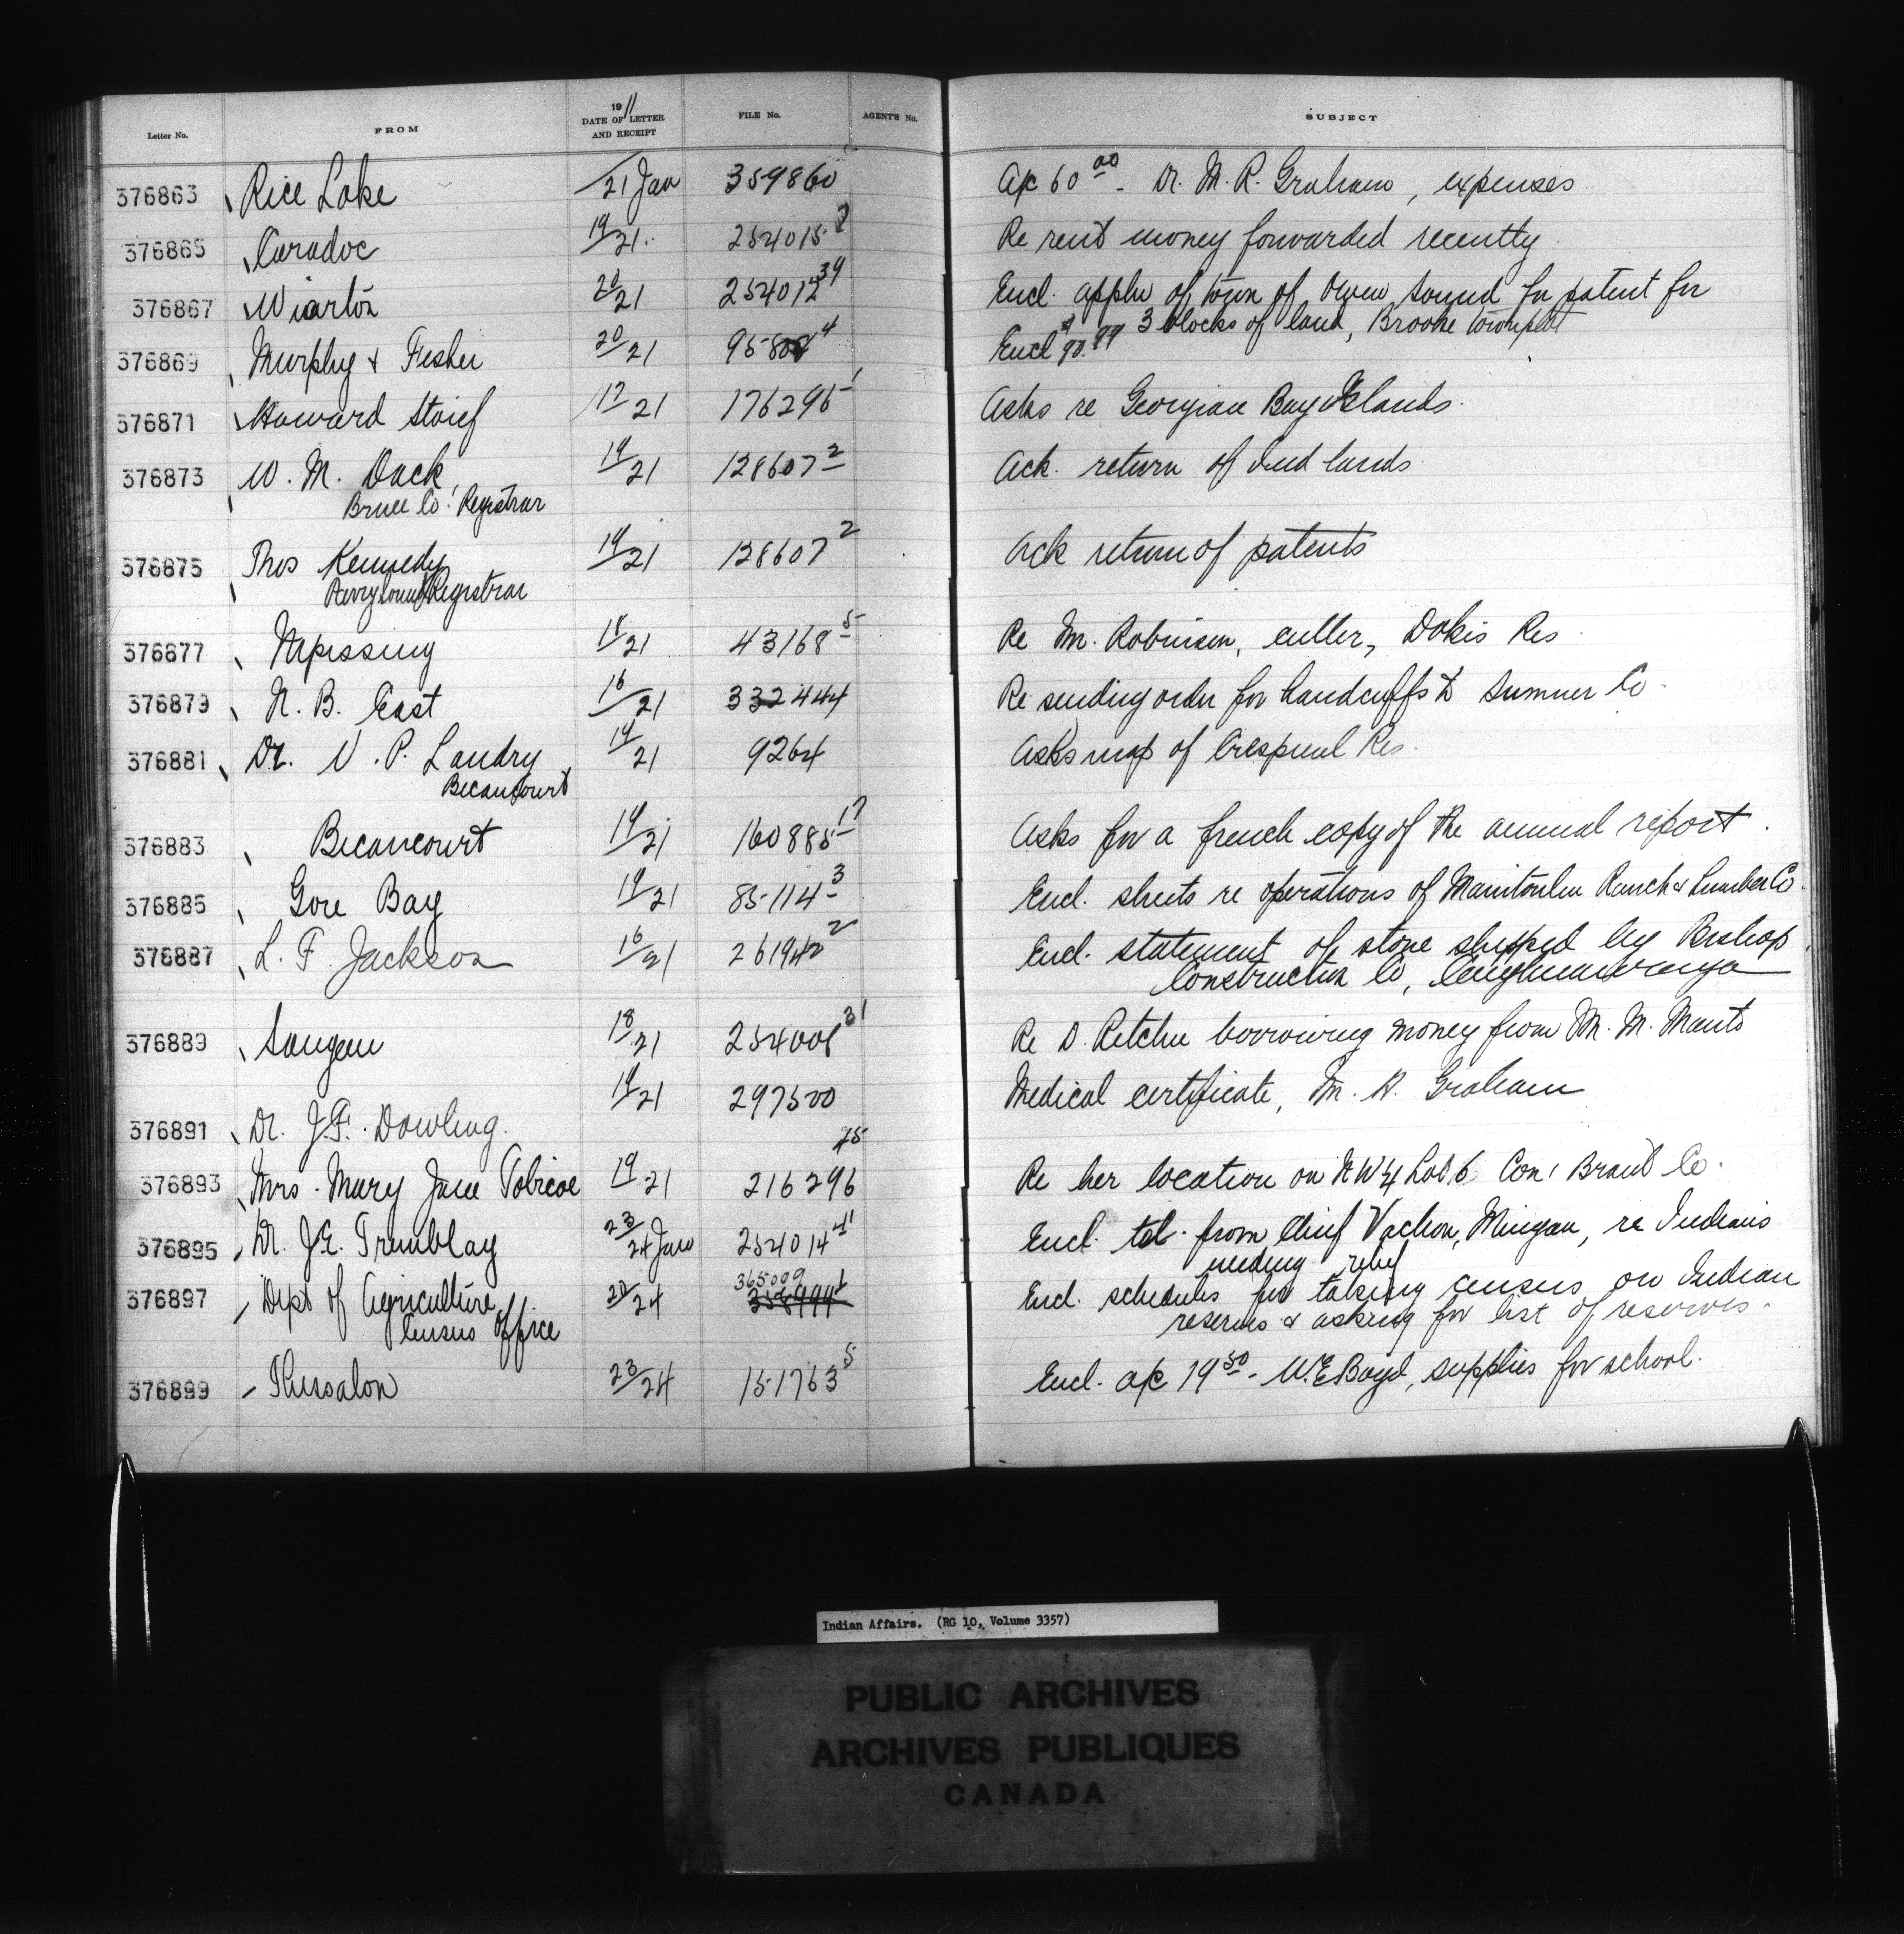 Letter No. FROM 1911 DATE OF LETTER AND RECEIPT FILE No. AGENT'S No. SUBJECT
376863 Rice Lake 21 Jan 359860 a/c 60 00 - Dr. M. R. Graham, expenses
376865 Caradoc 19/21 254015 Re rent money forwarded recently
376867 Wiarton 20/21 254012 39 Encl. appln of town of Owen Sound for patent for
3 blocks of land, Brooke townplot
376869 Murphy & Fisher 20/21 95802 4 Encl $90.99
376871 Howard 17/21 176295 1 Asks re Georgian Bay Islands.
376873 W. M. Dack, 19/21 128607 2 Ack. return of Ind lands
Bruce Co. Registrar
376875 Thos Kennedy 19/21 128607 2 Ack return of patents
Parry Sound Registrar
376877 Nipissing 19/21 43168 5 Re Mr. Robinson, culler, Dokis Res
376879 N. B. East 16/21 332444 Re sending order for handcuffs to Sumner Co
376881 Dr. P. Landry 19/21 9264 Asks map of Crespieul Res.
Becancourt
376883 Becancourt 19/21 160885 17 Asks for a french copy of the annual report.
376885 Gore Bay 19/21 85114 3 Encl. sheets re operations of Manitoulin Ranch & Lumber Co.
376887 L. F. Jackson 16/21 261942 2 Encl. statement of stone shipped by Bishop
Construction Co, Caughnawaga
376889 Saugeen 18/21 254001 31 Re D. Ritchie borrowing money from Mr. M.
376891 Dr. J. F. Dowling. 19/21 297500 Medical certificate, M. Graham
376893 Mrs. Mary Jane Tobicoe 19/21 216296 75 Re her location on NW 1/4 Lot 6 Con 1 Brant Co.
376895 Dr. J. E. Tremblay 23/24 Jan 254014 41 Encl. tel. from Chief Vachon, Mingan, re Indians
needing relief
376897 Dept of Agriculture 20/24 365009 1 358994 Encl. schedules for taking census on Indian
Census Office reserves & asking for list of reserves.
376899 Thessalon 23/24 151763 5 Encl. a/c 19 50 - W. E. Boyd, supplies for school.
Indian Affairs. (RG 10, Volume 3357)
PUBLIC ARCHIVES
ARCHIVES PUBLIQUES
CANADA